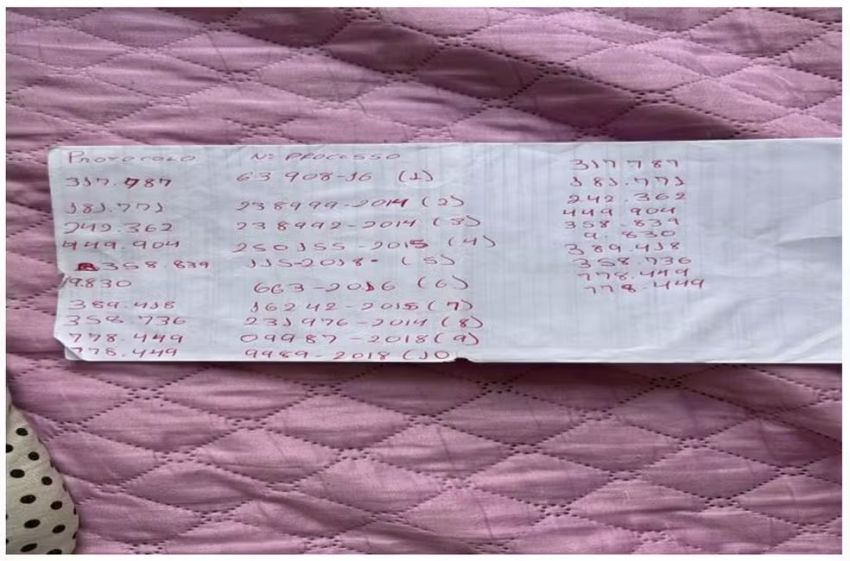 PROTOCOLO Nº PROCESSO
317.787 63908-16 (1)
181.771 238999-2014 (2)
242.362 238992-2014 (3)
449.904 250155-2015 (4)
358.839 115-2018- (5)
19.830 663-2016 (6)
389.418 16242-2015 (7)
358.736 231976-2014 (8)
778.449 09987-2018 (9)
778.449 9989-2018 (10
317787
181.771
242.362
449904
358.839
9.830
389.418
358.736
778.449
778.449